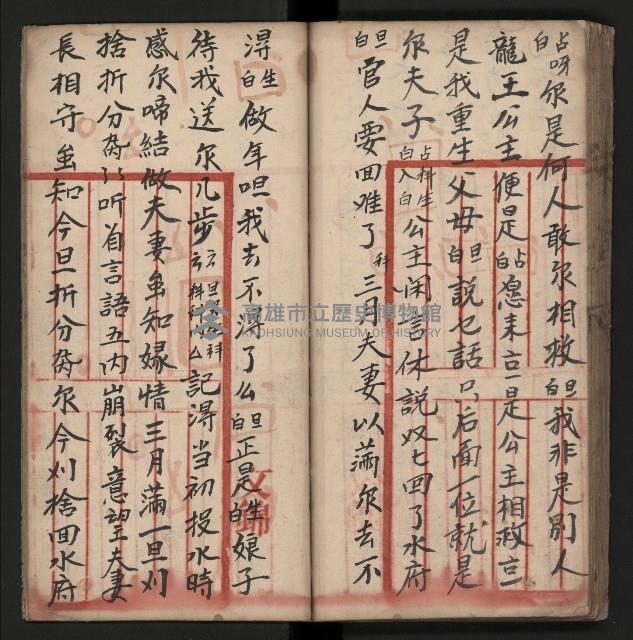 占白呀尔是何人敢尔相救旦白我非是别人
龍王公主便是占白
是我重生父母旦白説乜話只后面一位就是
尔夫子占科生白入白公主闲言休説奴乜回了水府
旦白官人要回难了科三月夫妻以滿尔去不
淂生白做年呾我去不淂了么旦白正是生白娘子
待我送尔几步記淂当初投水時
感尔啼結做夫妻虽知縁情三月滿一旦刈
捨折分听着言語五内崩裂意望夫妻
長相守虽知今旦折分尔今刈捨回水府
高雄市立歷史博物館
KAOHSIUNG MUSEUM OF HISTORY